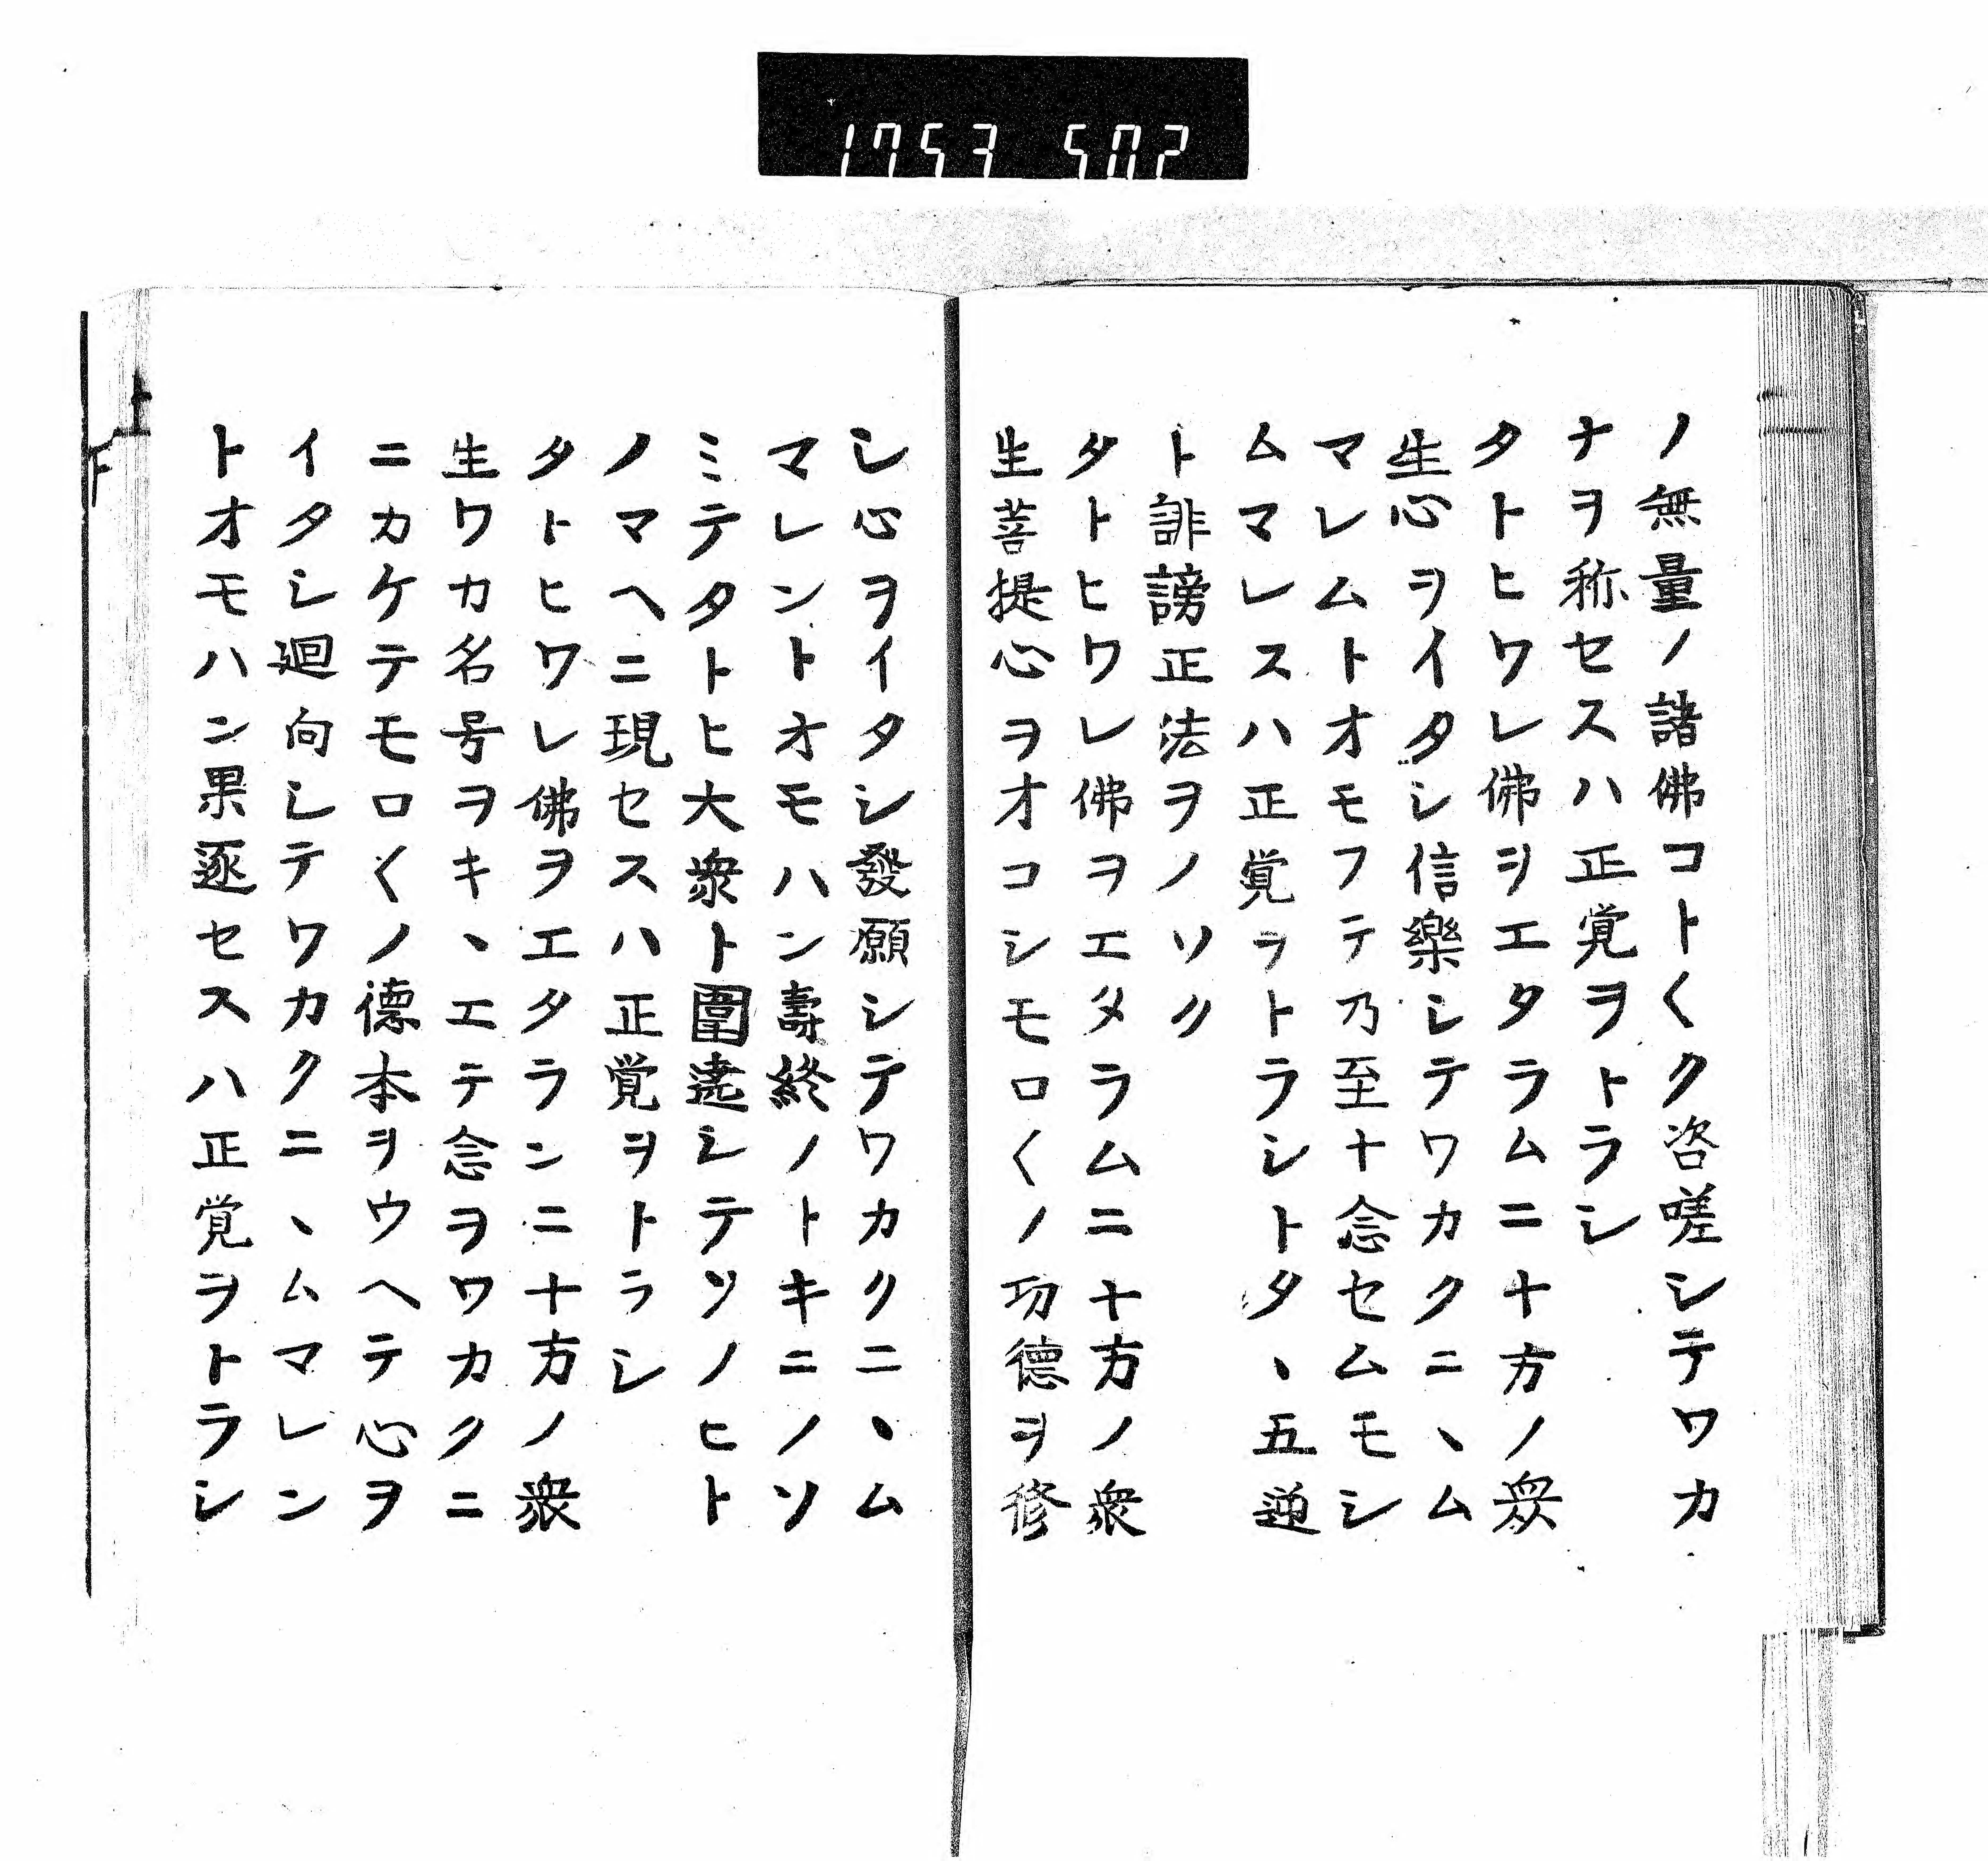 1753 502
ノ無量ノ諸佛コト〱ク咨嗟シテワカ
ナヲ称セスハ正覚ヲトラシ
タトヒワレ佛ヲエタラムニ十方ノ衆
生心ヲイタシ信樂シテワカクニヽム
マレムトオモフテ乃至十念セムモシ
ムマレスハ正覚ヲトラシトタヽ五逆
ト誹謗正法ヲノソク
タトヒワレ佛ヲエタラムニ十方ノ衆
生菩提心ヲオコシモロ〱ノ功德ヲ修
シ心ヲイタシ發願シテワカクニヽム
マレントオモハン壽終ノトキニノソ
ミテタトヒ大衆ト圍遶シテソノヒト
ノマヘニ現セスハ正覚ヲトラシ
タトヒワレ佛ヲエタランニ十方ノ衆
生ワカ名号ヲキヽエテ念ヲワカクニ
ニカケテモロ〱ノ德本ヲウヘテ心ヲ
イタシ迴向シテワカクニヽムマレン
トオモハン果遂セスハ正覚ヲトラシ
上
下